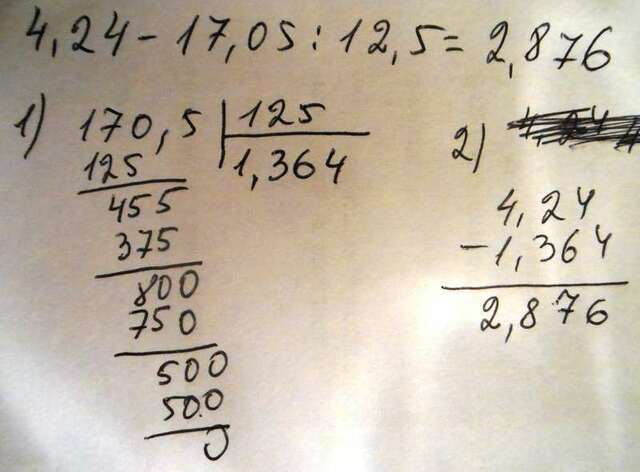 4,24 - 17,05 : 12,5 = 2,876
1) 170,5 | 125
125 1,364
455
375
800
750
500
500
0
2)
4,24
- 1,364
2,876